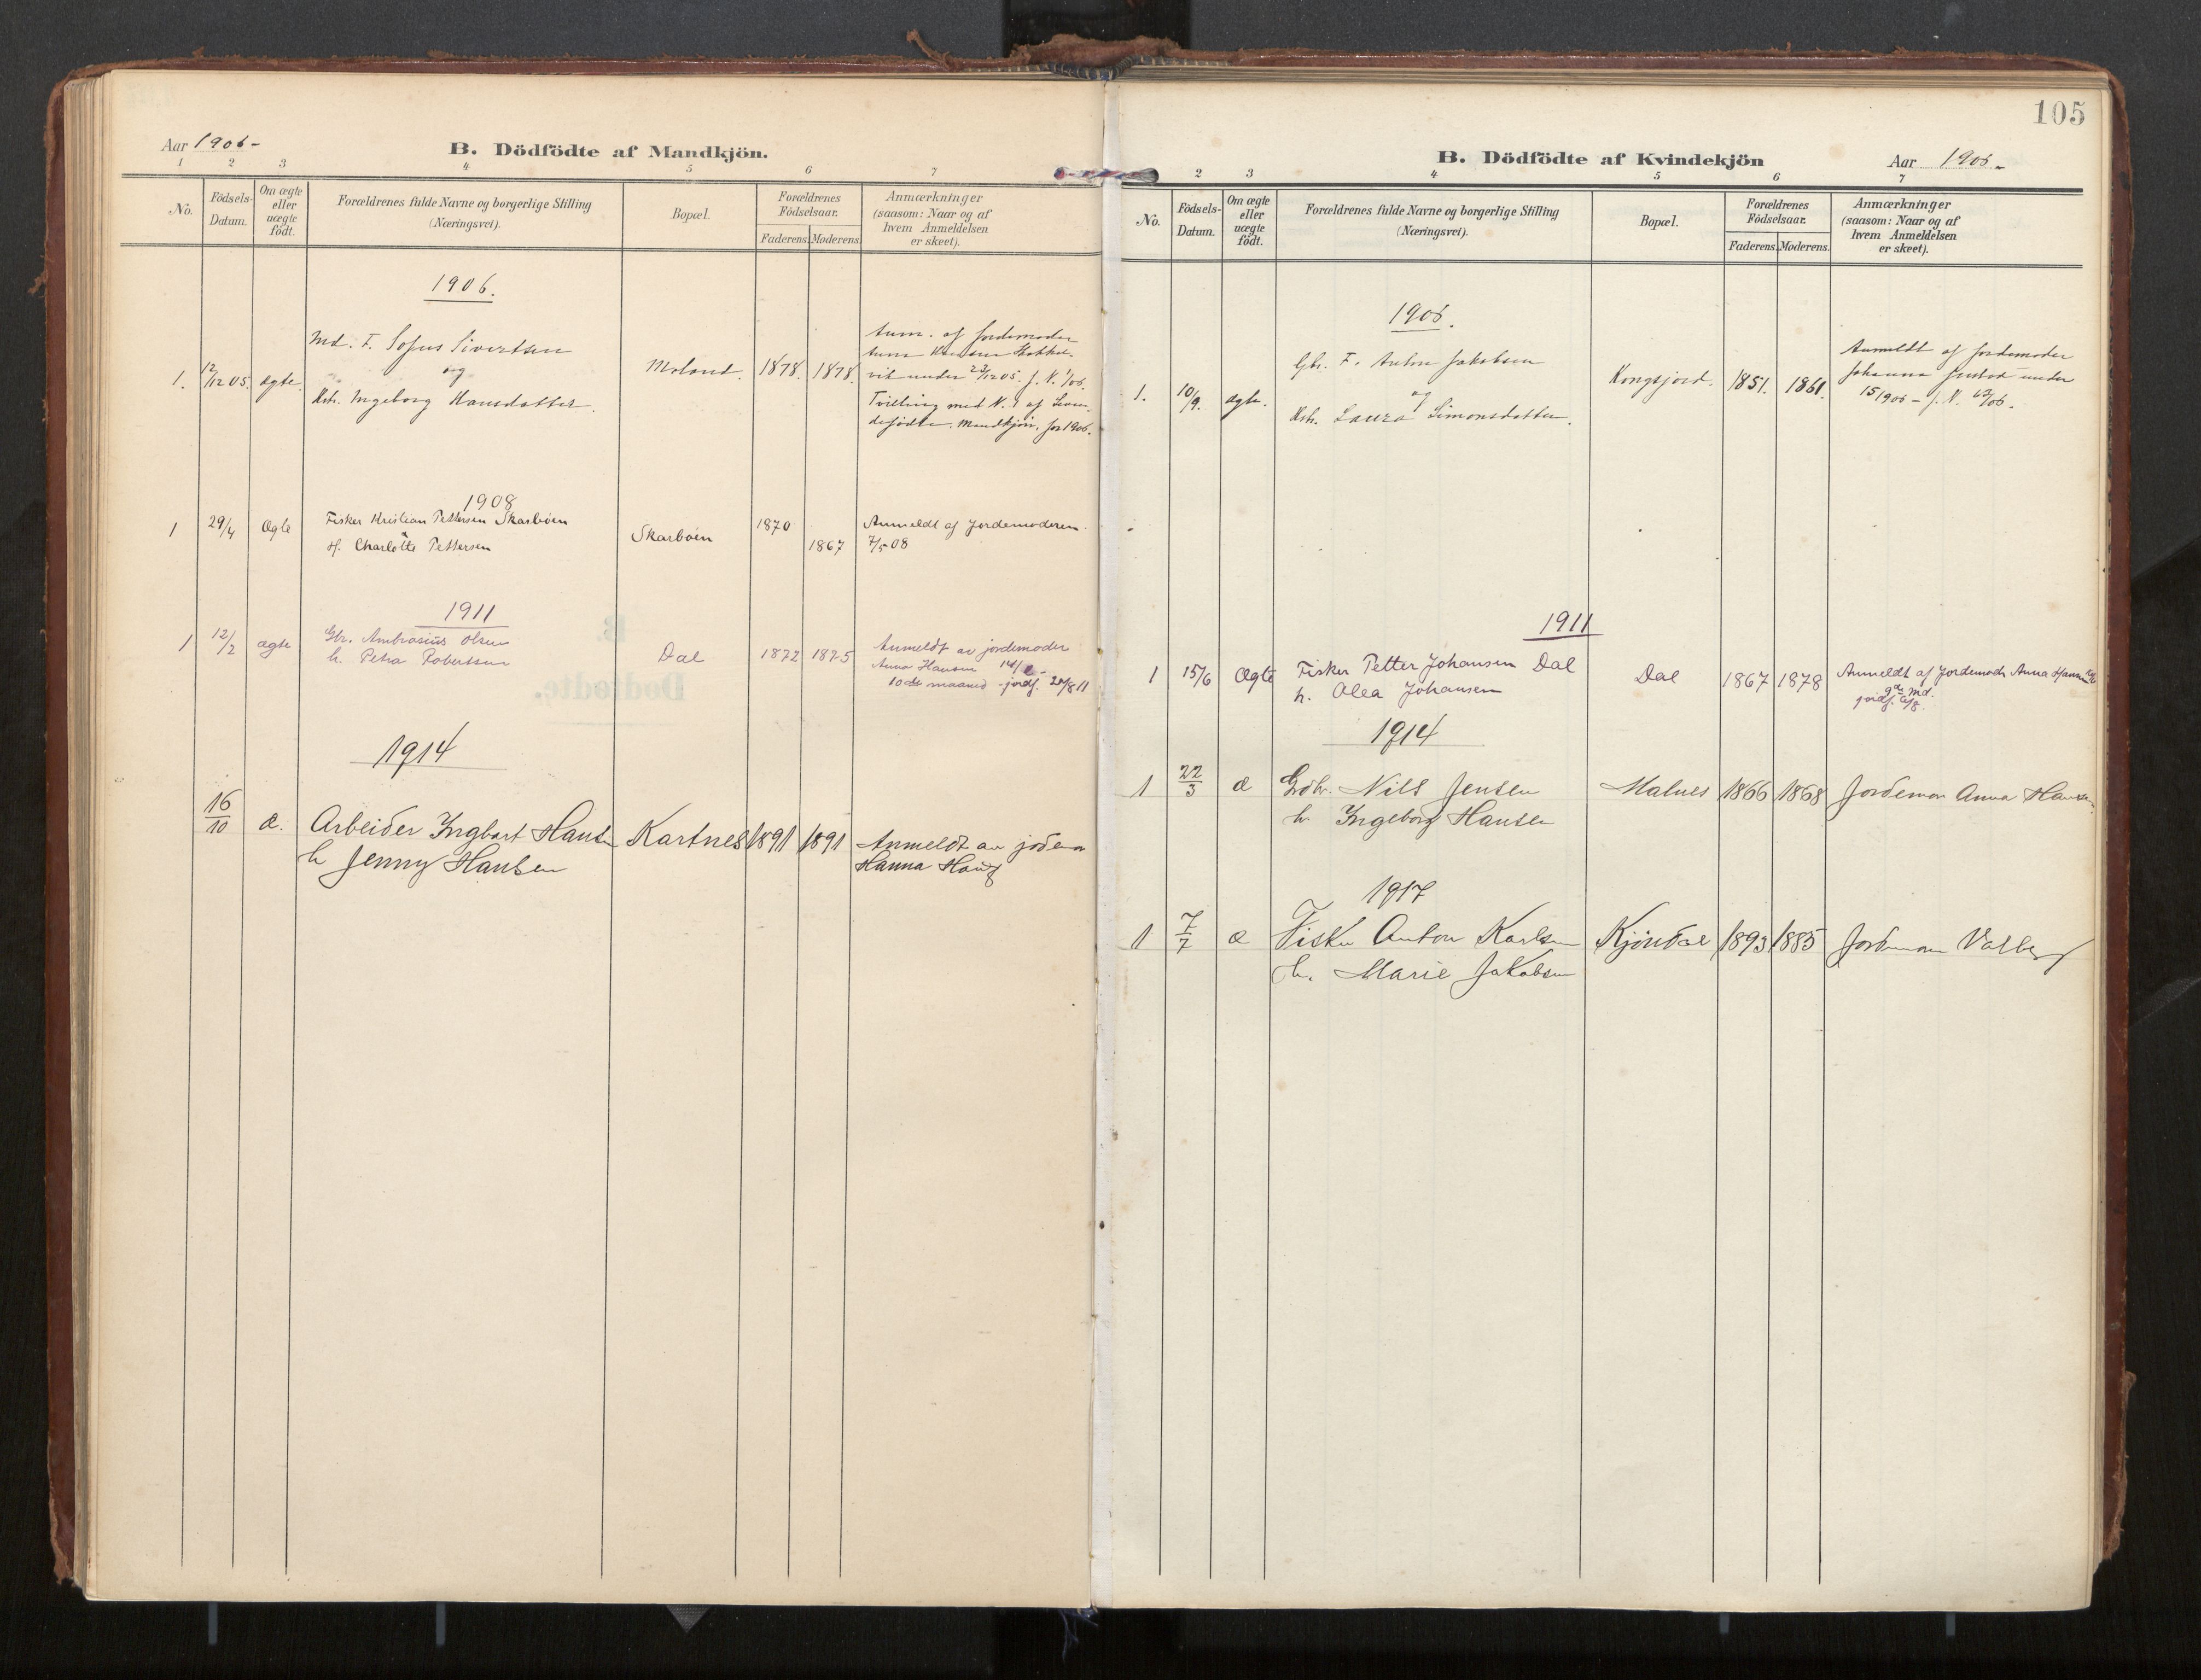 Aar 1906-
B. Dödfödte af Mandkjön.
1 2 3 4 5 6 7
No.
Födsels-
Datum.
Om ægte
eller
uægte
födt.
Forældrenes fulde Navne og borgerlige Stilling
(Næringsvei).
Bopæl.
Forældrenes
Födselsaar.
Faderens. Moderens.
Anmærkninger
(saasom: Naar og af
hvem Anmeldelsen
er skeet).
1906.
1. 12/12 05. ægte. Md. F. Sofus Sivertsen
og
Kstr. Ingeborg Hansdatter.
Moland. 1878. 1878.
Anm. af Jordemoder
Anna Hansen
vik under 23/12 05. J. N. 1/06.
Tvilling med N. 1 af Leven-
defödte, Mandkjön, for 1906.
1908
1 29/4 Ægte Fisker Kristian Pettersen Skarböen
H. Charlotte Pettersen
Skarböen 1870 1867
Anmeldt af Jordemoderen
7/5 08
1911
1 12/2 ægte Gbr. Ambrosius Olsen
h. Petra Robertsen
Dal 1872 1875
Anmeldt av jordemoder
Anna Hansen 14/2 -
10de maaned - jordf. 20/8 11
1914
16/10 æ. Arbeider Ingbart Hansen
h Jenny Hansen
Kartnes 1891 1891
Anmeldt av jodem
Hanna Haug
105
B. Dödfödte af Kvindekjön
Aar 1906-
2 3 4 5 6 7
No.
Födsels-
Datum.
Om ægte
eller
uægte
födt.
Forældrenes fulde Navne og borgerlige Stilling
(Næringsvei).
Bopæl.
Forældrenes
Födselsaar.
Faderens. Moderens.
Anmærkninger
(saasom: Naar og af
hvem Anmeldelsen
er skeet).
1906.
1. 10/9. ægte. Gbr. F. Anton Jakobsen
og
Kstr. Laura Simonsdatter.
Kongsjord. 1851. 1861.
Anmeldt af Jordemoder
Johanna under
J. N.
1911
1 15/6 Ægte Fisker Petter Johansen Dal
h. Olea Johansen
Dal 1867 1878
Anmeldt af Jordemodr Anna Hansen
9de Md.
jordf.
1914
1 22/3 æ Grdbr. Nils Jensen
h. Ingeborg Hansen
Malnes 1866 1868 Jordemor Anna Hansen
1917
1 7/7 æ Fisker Anton Karlsen
h. Marie Jakobsen
Kjöndal 1893 1885 Jordemor Valberg